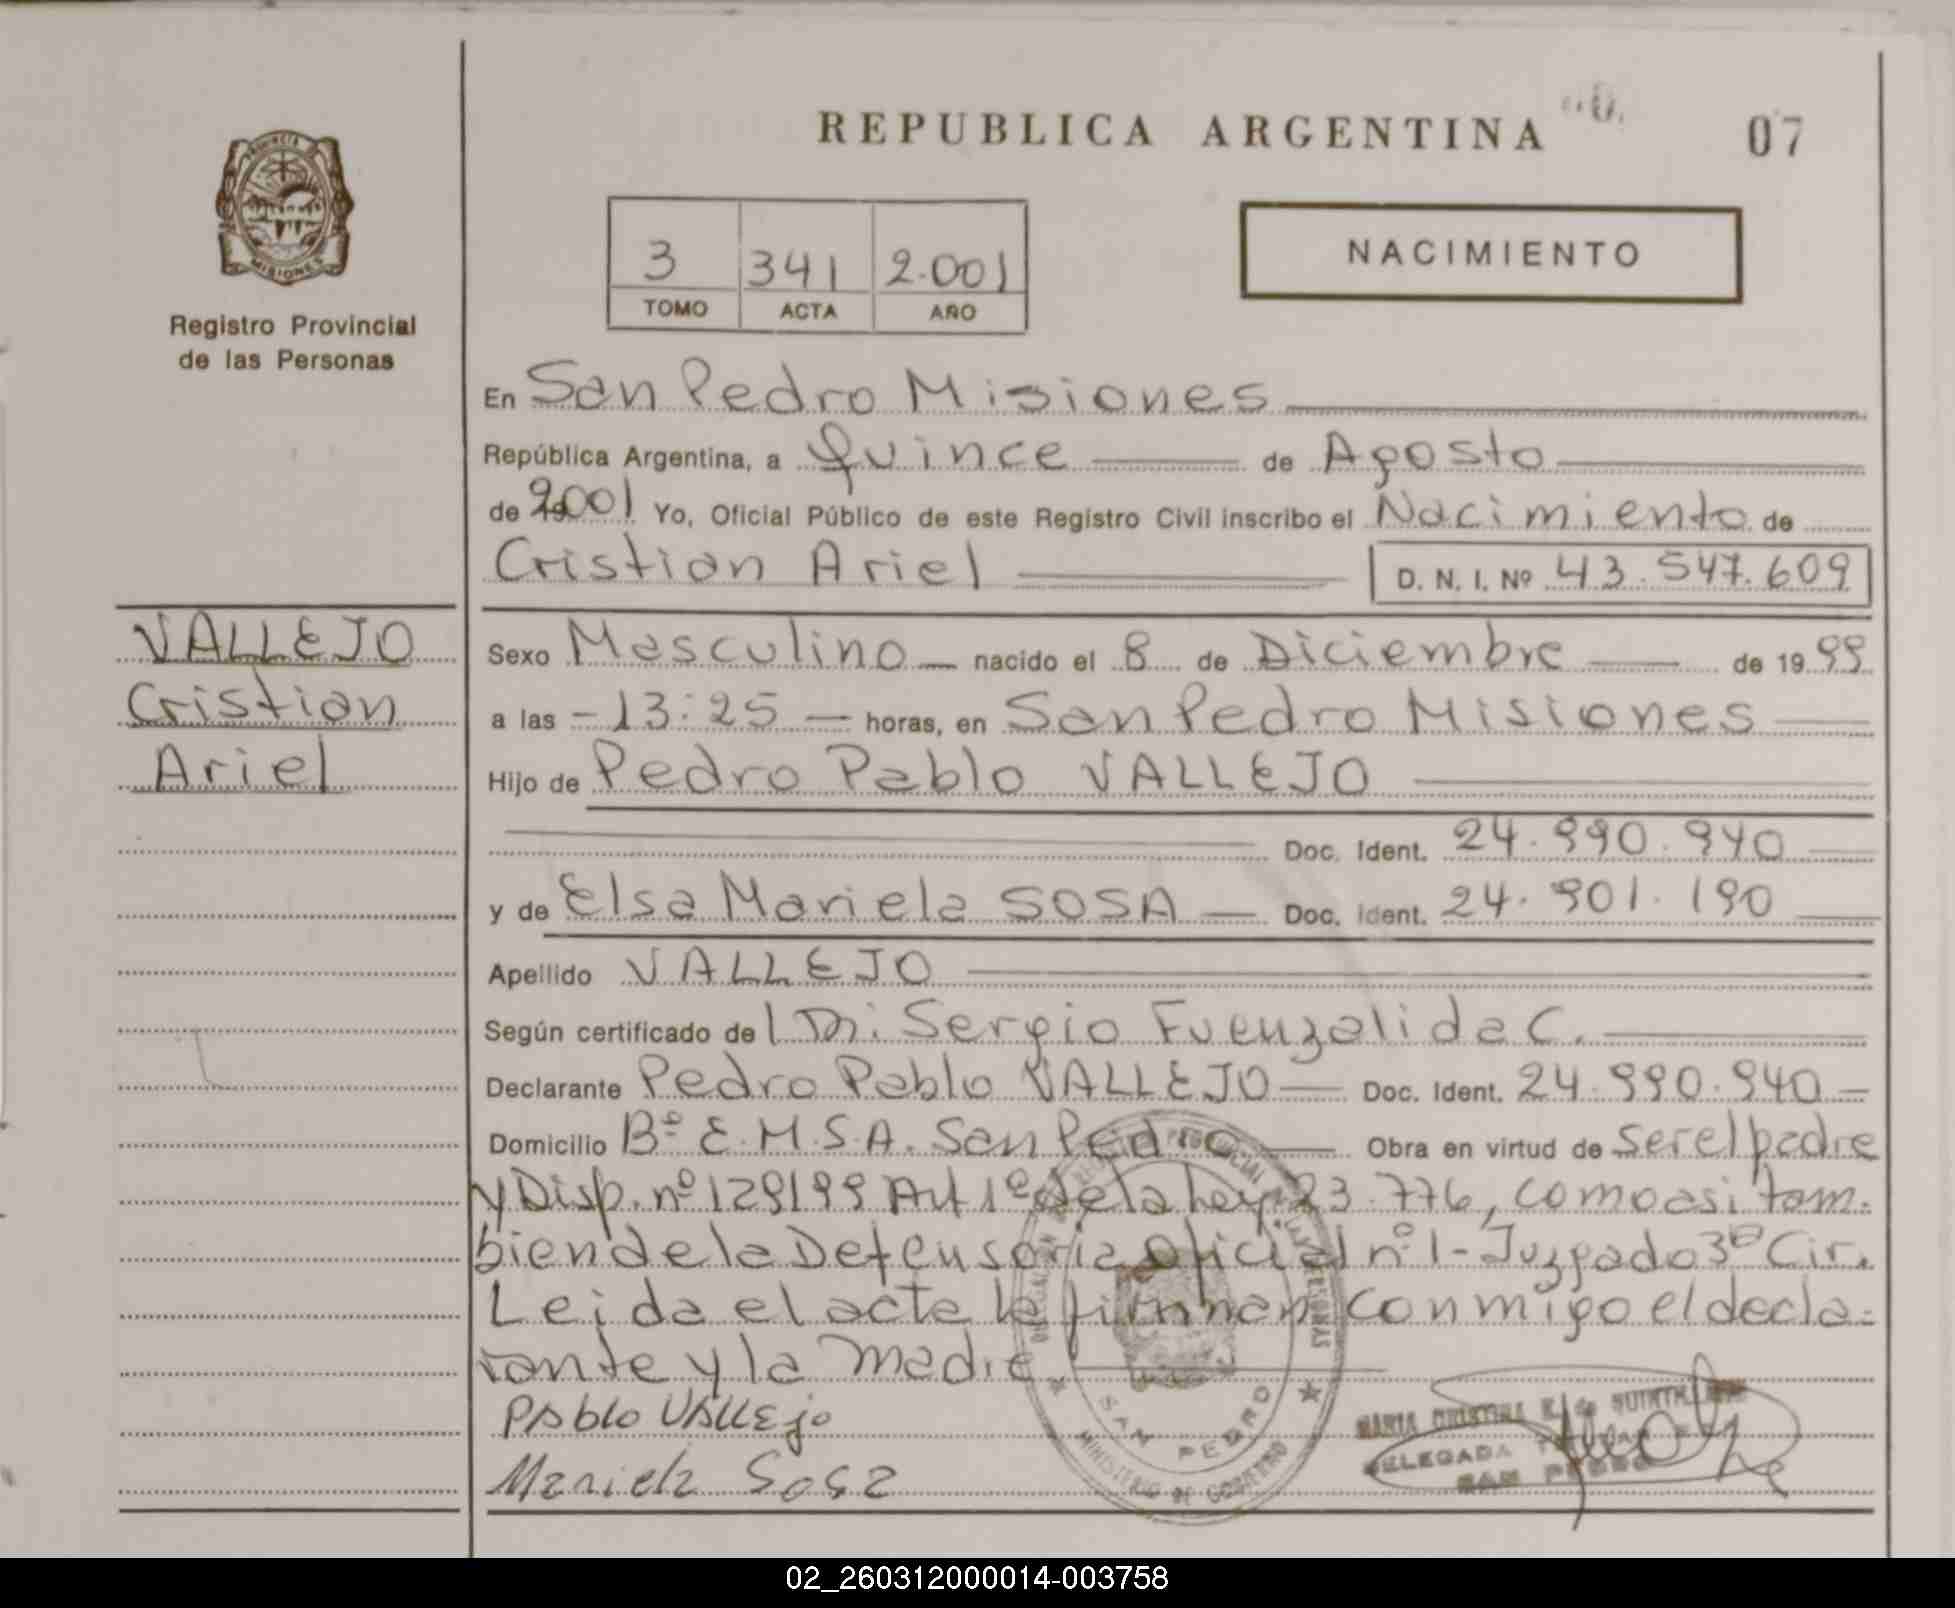 REPUBLICA ARGENTINA
07
PROVINCIA
MISIONES
Registro Provincial
de las Personas
3 341 2.001
TOMO ACTA AÑO
NACIMIENTO
En San Pedro Misiones
República Argentina, a Quince de Agosto
de 2001 Yo, Oficial Público de este Registro Civil inscribo el Nacimiento de
Cristian Ariel D. N. I. Nº 43.547.609
VALLEJO
Cristian
Ariel
Sexo Masculino nacido el 8 de Diciembre de 19 99
a las - 13:25 horas, en San Pedro Misiones
Hijo de Pedro Pablo VALLEJO
Doc. Ident. 24.990.940
y de Elsa Mariela SOSA Doc. Ident. 24.901.190
Apellido VALLEJO
Según certificado de Dr. Sergio Fuenzalida C.
Declarante Pedro Pablo VALLEJO Doc. Ident. 24.990.940
Domicilio Bº E.M.S.A. San Pedro Obra en virtud de ser el padre
y Disp. nº 129199 Art 1º de la Ley 23.776, como asi tam-
bien de la Defensoria Oficial nº 1 - Juzgado 3ª Cir.
Leida el acta la firman conmigo el decla-
rante y la madre
PAblo VALLEjo
Mariela Sosa
SAN PEDRO
MINISTERIO DE GOBIERNO
MARIA CRISTINA
DELEGADA TITULAR
SAN PEDRO
02_260312000014-003758